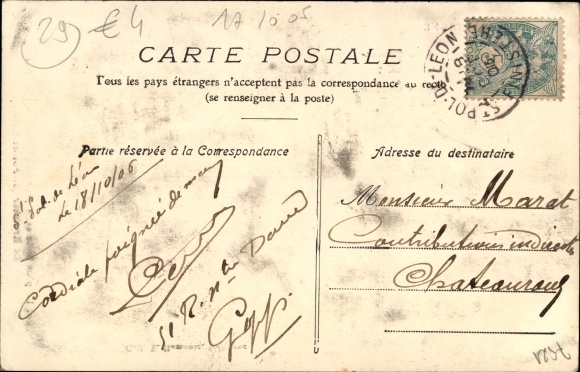 29
€4
17 10 05
CARTE POSTALE
Tous les pays étrangers n'acceptent pas la correspondance au recto
(se renseigner à la poste)
ST POL-DE-LEON
FINISTERE
Partie réservée à la Correspondance
Adresse du destinataire
St Pol-de-Léon
Le 18/10/05
Cordiale poignée de main
51 R. Notre Dame
Monsieur Marat
Contributions indirectes
Chateauroux